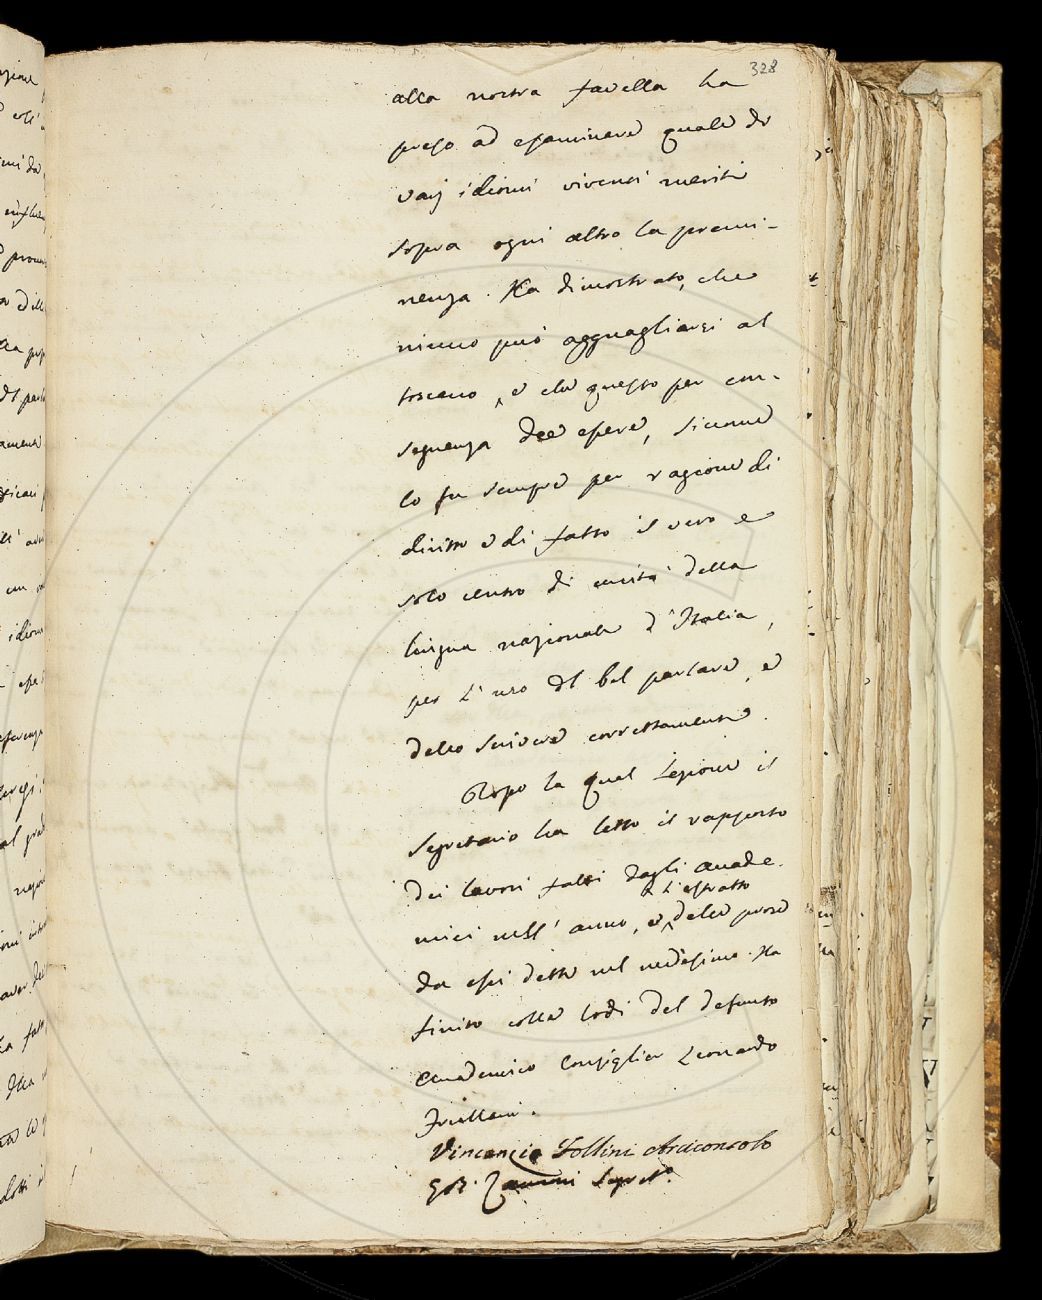 328
alla nostra favella ha
preso ad esaminare quale de
varj idiomi viventi meriti
sopra ogni altro la premi-
nenza. Ha dimostrato, che
niuno può agguagliarsi al
toscano, e che questo per con-
seguenza dee essere, siccome
lo fu sempre per ragione di
diritto e di fatto il vero e
solo centro di unità della
lingua nazionale d'Italia,
per l'uso del bel parlare, e
dello scrivere correttamente.
Dopo la qual Lezione il
Segretario ha letto il rapporto
dei lavori fatti dagli Accade-
l'estratto
mici nell'anno, e delle prose
da essi dette nel medesimo. Ha
finito colle lodi del defunto
Accademico Consiglier Leonardo
Frullani.
Vincenzio Follini Arciconsolo
G. B. Zannoni Segret.º